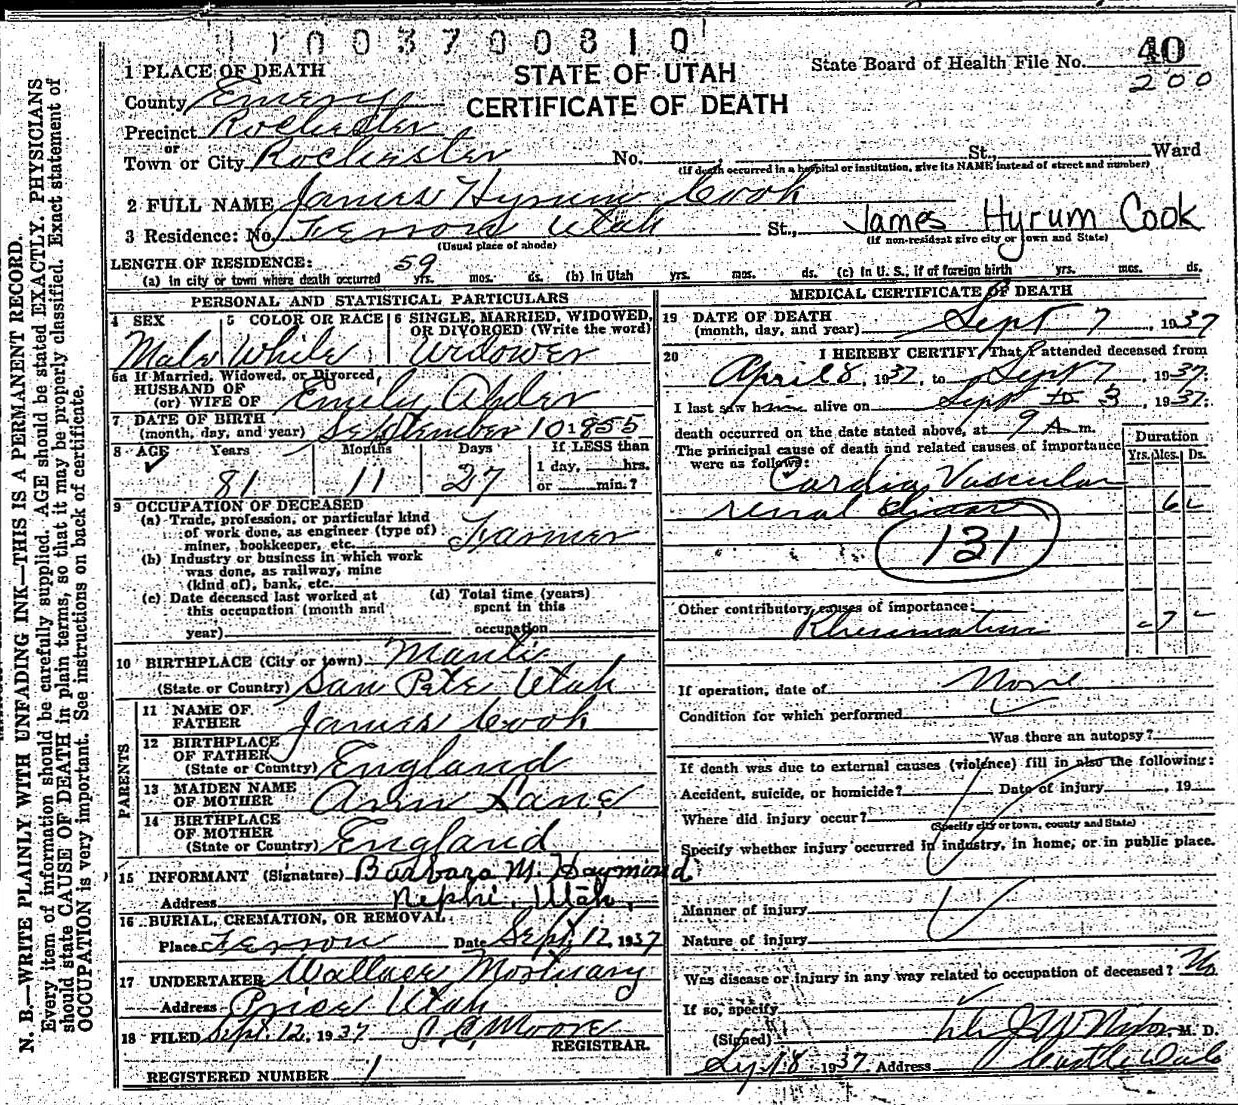 1 1 0 0 3 7 0 0 8 1 0
STATE OF UTAH
CERTIFICATE OF DEATH
State Board of Health File No. 40
200
1 PLACE OF DEATH
County Emery
Precinct Rochester
or
Town or City Rochester No. St., Ward
(If death occurred in a hospital or institution, give its NAME instead of street and number)
2 FULL NAME James Hyrum Cook
3 Residence: No. Ferron Utah St., James Hyrum Cook
(Usual place of abode) (If non-resident give city or town and State)
LENGTH OF RESIDENCE:
(a) In city or town where death occurred 59 yrs. mos. ds. (b) In Utah yrs. mos. ds. (c) In U. S., if of foreign birth yrs. mos. ds.
PERSONAL AND STATISTICAL PARTICULARS
4 SEX 5 COLOR OR RACE 6 SINGLE, MARRIED, WIDOWED, OR DIVORCED (Write the word)
Male White Widower
6a If Married, Widowed, or Divorced,
HUSBAND OF
(or) WIFE OF Emily
7 DATE OF BIRTH
(month, day, and year) September 10 1855
8 AGE Years Months Days If LESS than
1 day, hrs.
81 11 27 or min.?
9 OCCUPATION OF DECEASED
(a) Trade, profession, or particular kind
of work done, as engineer (type of)
miner, bookkeeper, etc. Farmer
(b) Industry or business in which work
was done, as railway, mine
(kind of), bank, etc.
(c) Date deceased last worked at
this occupation (month and
year)
(d) Total time (years)
spent in this
occupation
10 BIRTHPLACE (City or town) Manti
(State or Country) San Pete, Utah
PARENTS
11 NAME OF
FATHER James Cook
12 BIRTHPLACE
OF FATHER
(State or Country) England
13 MAIDEN NAME
OF MOTHER Ann Lane
14 BIRTHPLACE
OF MOTHER
(State or Country) England
15 INFORMANT (Signature) Barbara M. Haymond
Address Nephi, Utah,
16 BURIAL, CREMATION, OR REMOVAL
Place Ferron Date Sept. 12, 1937
17 UNDERTAKER Wallace Mortuary
Address Price Utah
18 FILED Sept. 12, 1937 J. C. Moore
REGISTRAR.
REGISTERED NUMBER 1
MEDICAL CERTIFICATE OF DEATH
19 DATE OF DEATH
(month, day, and year) Sept 7, 1937
20 I HEREBY CERTIFY, That I attended deceased from
April 8, 1937, to Sept 7, 1937.
I last saw him alive on Sept 3, 1937;
death occurred on the date stated above, at 9 A m.
The principal cause of death and related causes of importance
were as follows:
Duration
Yrs. Mos. Ds.
Cardio Vascular
renal 6
131
Other contributory causes of importance:
Rheumatism - 7 -
If operation, date of None
Condition for which performed
Was there an autopsy?
If death was due to external causes (violence) fill in also the following:
Accident, suicide, or homicide? Date of injury , 19
Where did injury occur?
(Specify city or town, county and State)
Specify whether injury occurred in industry, in home, or in public place.
Manner of injury
Nature of injury
Was disease or injury in any way related to occupation of deceased? No
If so, specify
(Signed) M. D.
8 1937 Address Castle Dale
N. B.—WRITE PLAINLY WITH UNFADING INK—THIS IS A PERMANENT RECORD.
Every item of information should be carefully supplied. AGE should be stated EXACTLY. PHYSICIANS
should state CAUSE OF DEATH in plain terms, so that it may be properly classified. Exact statement of
OCCUPATION is very important. See instructions on back of certificate.